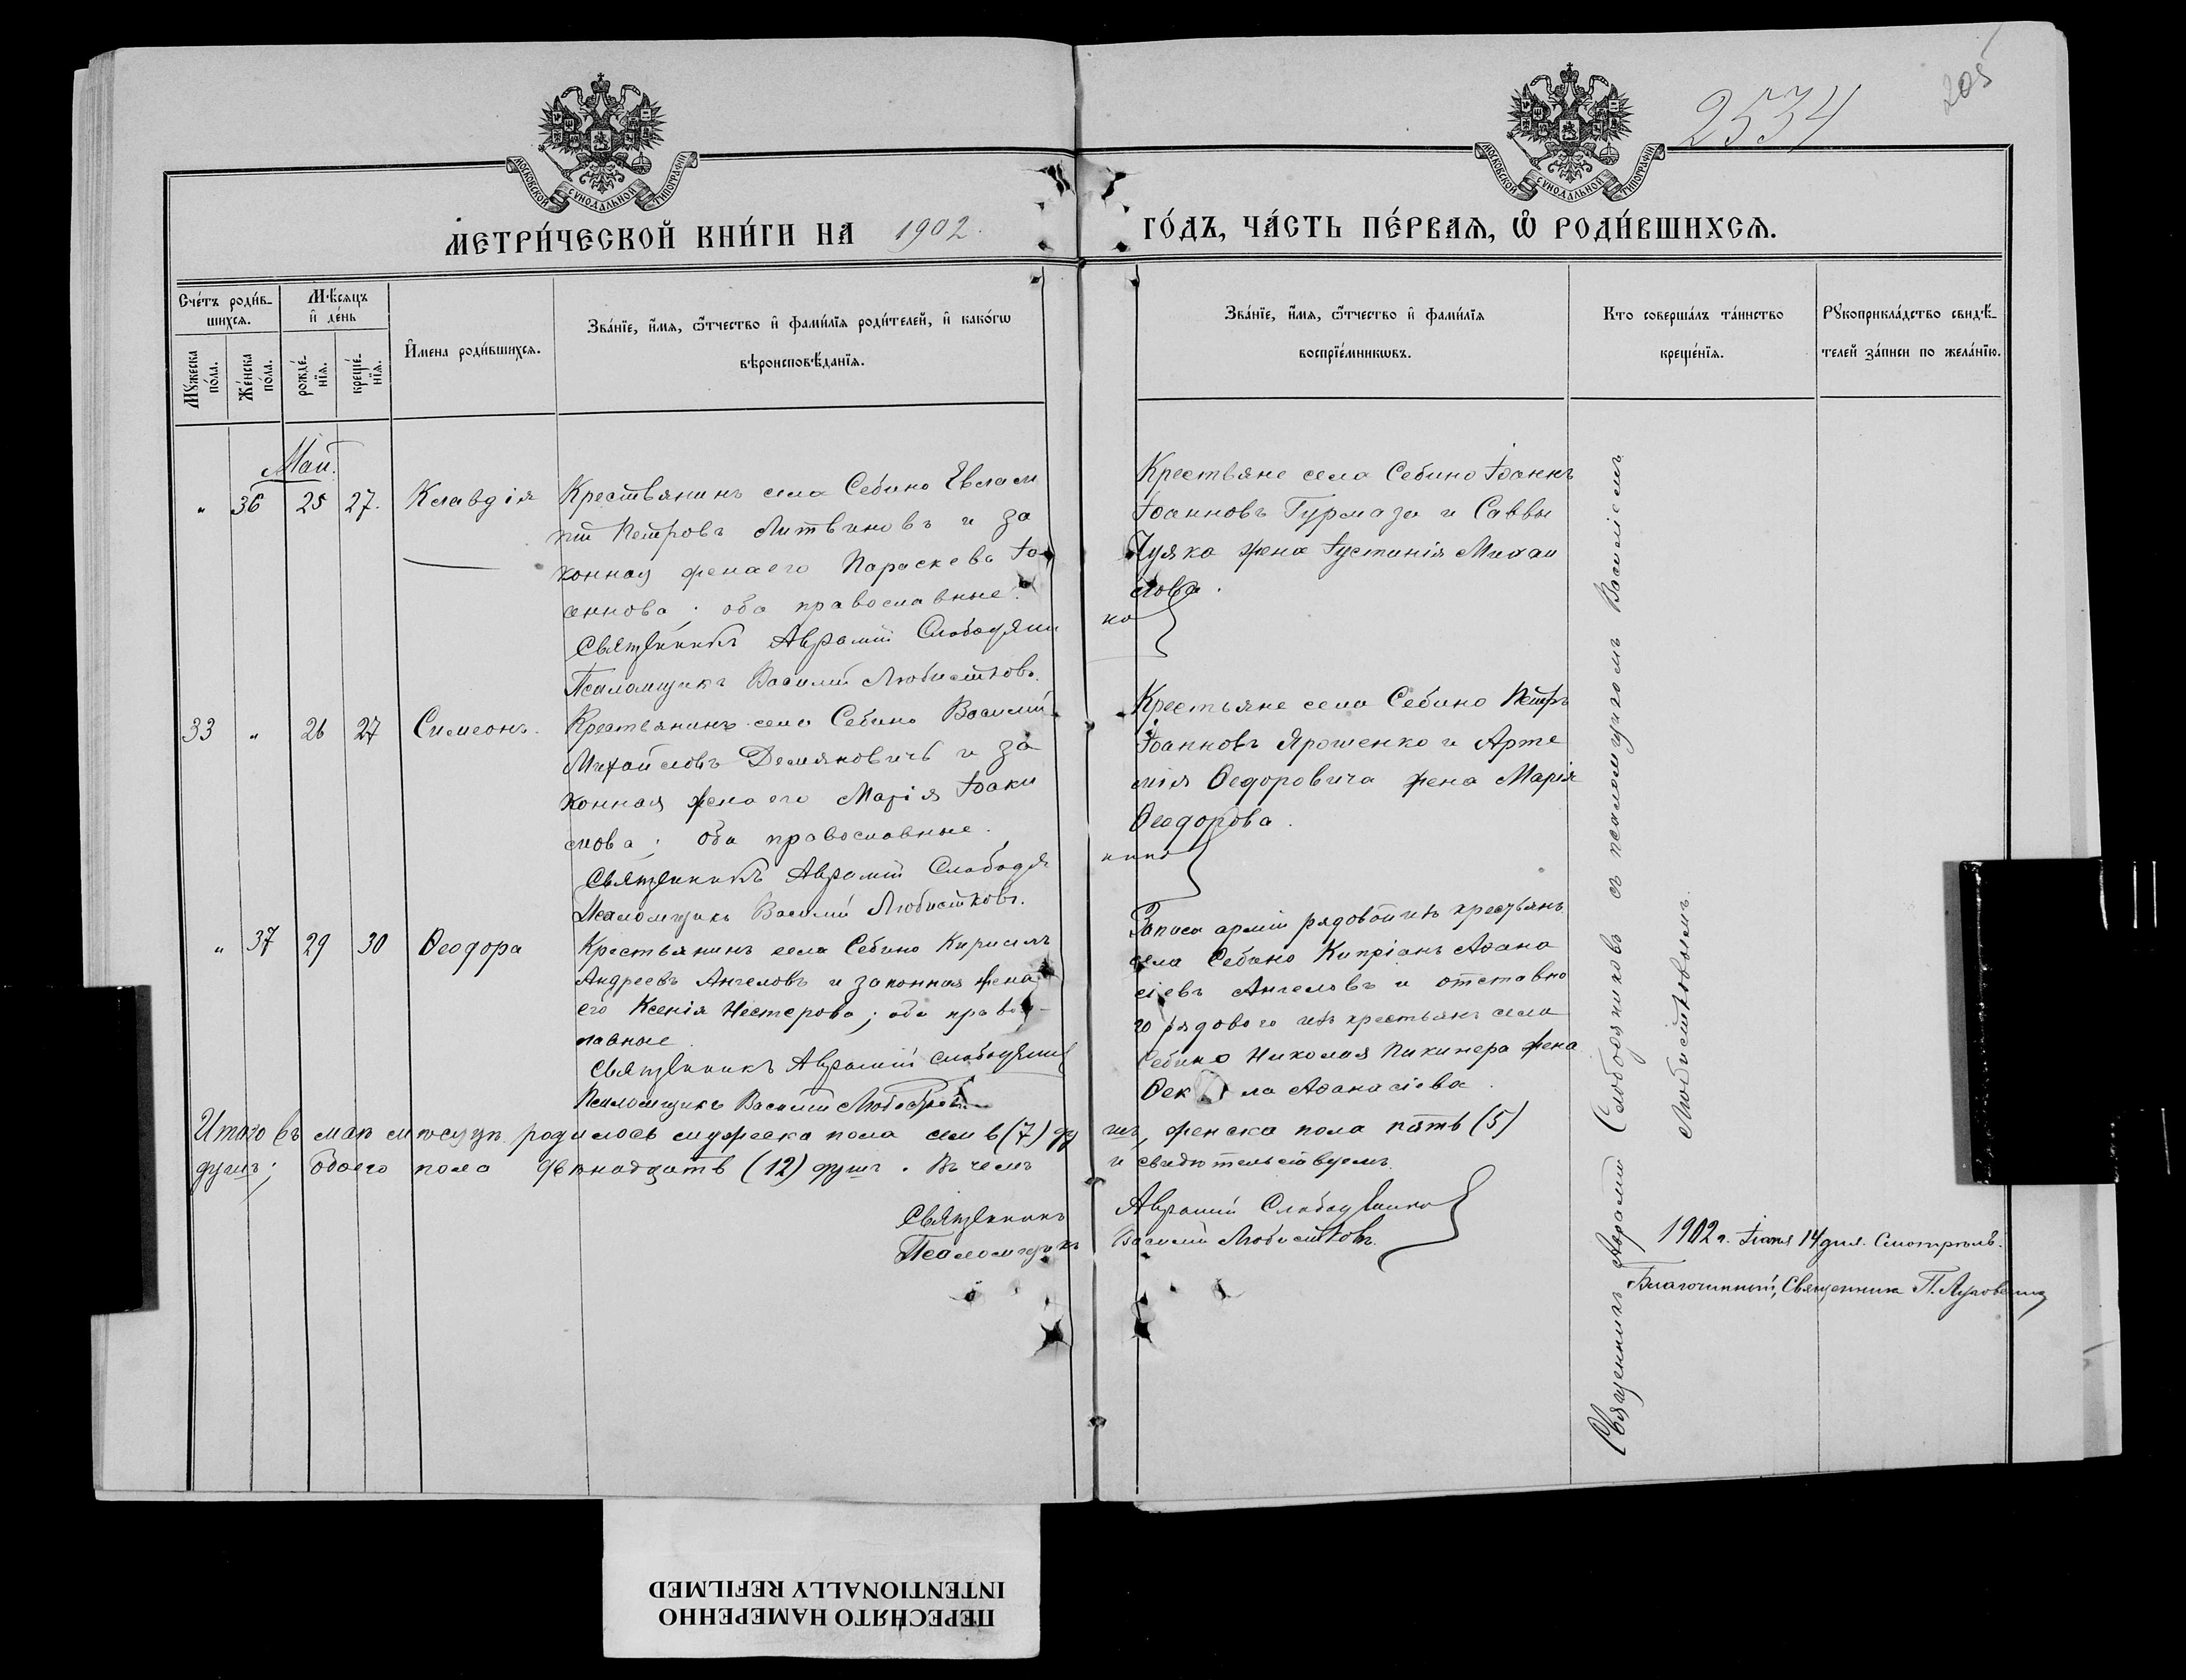 2534
205
МОСКОВСКОЙ СѴНОДАЛЬНОЙ ТИПОГРАФІИ
МОСКОВСКОЙ СѴНОДАЛЬНОЙ ТИПОГРАФІИ
МЕТРИ́ЧЕСКОЙ КНИ́ГИ НА 1902. ГО́ДЪ, ЧА́СТЬ ПЕ́РВАѦ, Ѡ҆ РОДИ́ВШИХСѦ.
Сче́тъ роди́в-
шихсѧ.
Мꙋ́жеска по́ла.
Же́нска по́ла.
Мѣ́сѧцъ и҆ де́нь
рожде́-нїѧ.
креще́-нїѧ.
И҆мена роди́вшихсѧ.
Зва́нїе, и҆́мѧ, ѻ҆́тчество и҆ фами́лїѧ роди́телей, и҆ како́гѡ
вѣроисповѣ́данїѧ.
Зва́нїе, и҆́мѧ, ѻ҆́тчество и҆ фами́лїѧ
воспрїе́мникѡвъ.
Кто соверша́лъ та́инство
креще́нїѧ.
Рꙋкоприкла́дство свидѣ́-
телей за́писи по жела́нїю.
Май.
" 36 25 27. Клавдія
Крестьянинъ села Себино Евлам
пій Петровъ Литвиновъ и за
конная жена его Параскева Іо
аннова; оба православные.
Священникъ Аврамій Слободяни
ко
Псаломщикъ Василій Любистковъ.
Крестьяне села Себино Іоаннъ
Іоанновъ Гурмаза и Саввы
Чуяко жена Іустинія Михаи
лова.
33 " 26 27 Симеонъ.
Крестьянинъ села Себино Василій
Михайловъ Демяновичъ и за
конная жена его Марія Іоаки
мова; оба православные.
Священникъ Аврамій Слободя
нико
Псаломщикъ Василій Любистковъ.
Крестьяне села Себино Петръ
Іоанновъ Ярошенко и Арте
мія Ѳедоровича жена Марія
Ѳеодорова.
" 37 29 30 Ѳеодора
Крестьянинъ села Себино Кириллъ
Андреевъ Ангеловъ и законная жена
его Ксенія Нестерова; оба правос-
лавные.
Священникъ Аврамій Слободянико
Псаломщикъ Василій Любистковъ.
Запаса арміи рядовой изъ крестьянъ
села Себино Кипріанъ Аѳана
сіевъ Ангеловъ и отставно
го рядового изъ крестьянъ села
Себино Николая Пикинера жена
Ѳекла Аѳанасіева.
Священникъ Аврамій Слободяниковъ съ псаломщикомъ Василіемъ
Любистковымъ.
Итого въ маѣ мѣсяцѣ родилось мужеска пола семь (7) ду шъ, женска пола пять (5)
душъ; обоего пола двѣнадцать (12) душъ. Въ чемъ и свидѣтельствуемъ.
Священникъ Аврамій Слободянико
Псаломщикъ Василій Любистковъ.
1902 г. Іюня 14 дня. Смотрѣлъ.
Благочинный, Священникъ П.
ПЕРЕСНЯТО НАМЕРЕННО
INTENTIONALLY REFILMED